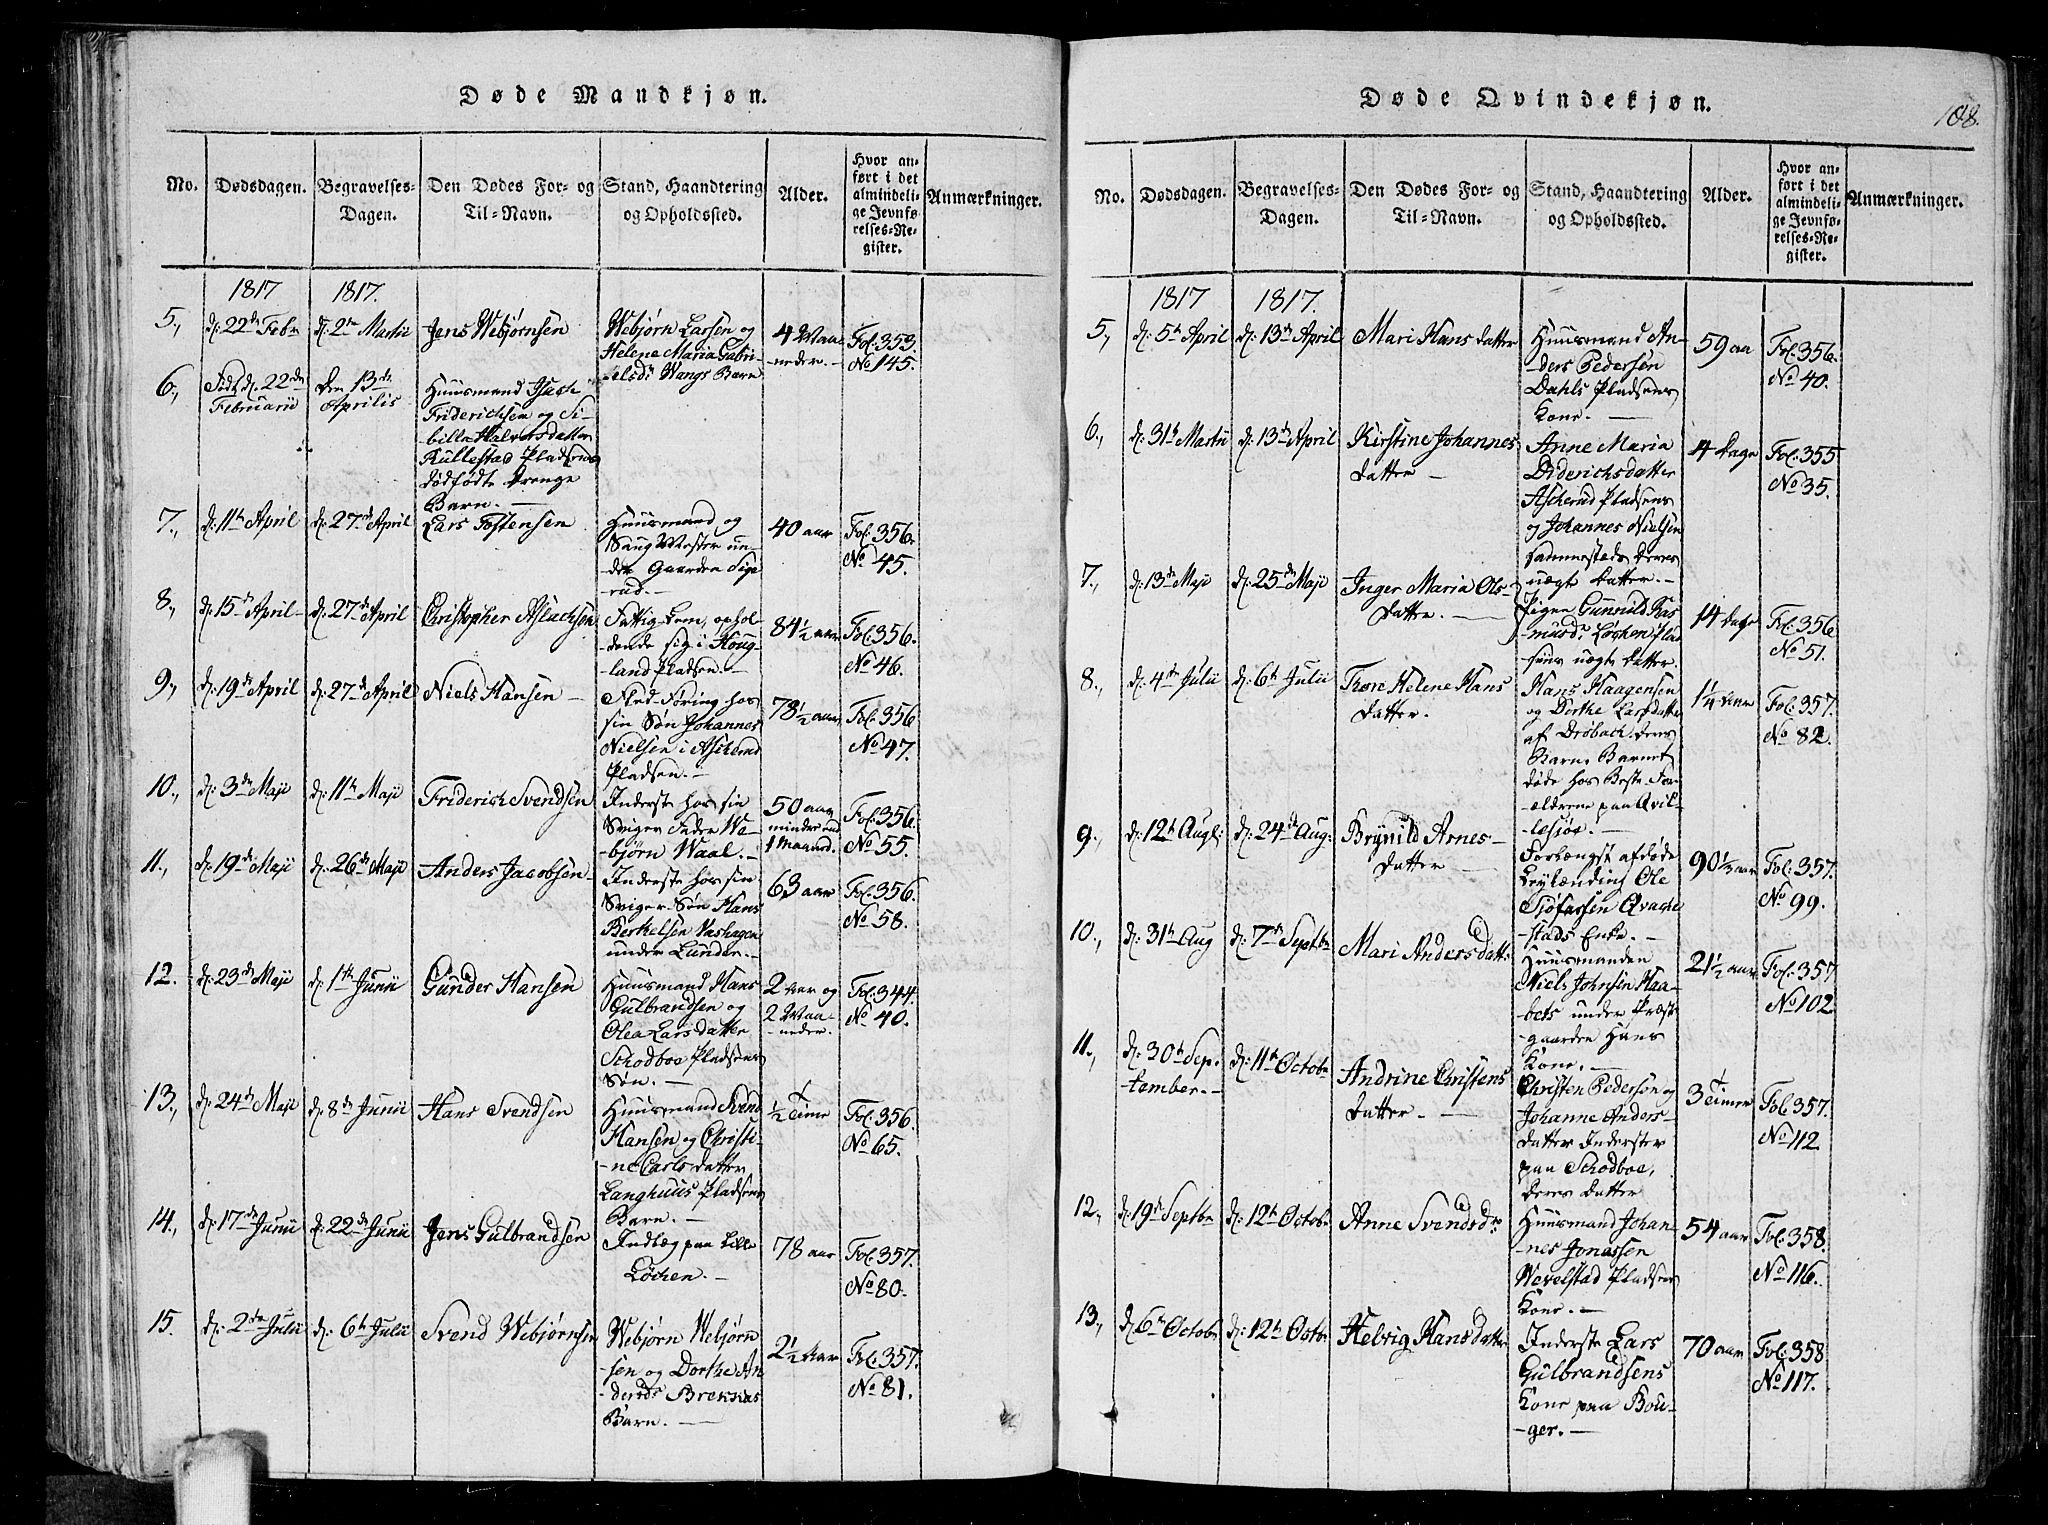 Døde Mandkjøn.
No.
Dødsdagen.
Begravelses-
Dagen.
Den Dødes For- og
Til-Navn.
Stand, Haandtering
og Opholdssted.
Alder.
Hvor an-
ført i det
almindeli-
ge Jevnfø-
relses-Re-
gister.
Anmærkninger.
1817
1817.
5.,
d: 22de Febr
d: 2den Martii
Jens Webjørnsen
Webjørn Larsen og
Helene Maria Gabri-
elsdr Wangs Barn
4 Maa-
neder.-
Fol. 353.
No 145.
6.,
Født d. 22de
Februarii
den 13de
Aprilis
Huusmand Isach
Friderichsen og Si-
bille Halvorsdatter
Kullestad Pladsens
dødfødte Drenge
Barn.-
7.,
d: 11te April
d: 27de April
Lars Tostensen
Huusmand og
Saug Mester un-
der Gaarden Sige-
rud.-
40 aar
Fol. 356.
No 45.
8.,
d: 15de April
d: 27de April
Christopher Aslachsen
Fattig-Lem, ophol-
dende sig i Houg-
land Pladsen.-
84½ aar
Fol. 356.
No 46.
9.,
d: 19de April
d: 27de April
Niels Hansen -
Sin Søn Johannes
Nielsen i Ascherud
Pladsen.-
78½ aar
Fol. 356
No 47.
10.,
d: 3de Maji
d: 11te Maji
Friderich Svendsen
Inderste hos sin
Sviger Fader We-
bjørn Waal.-
50 aar
mindre end
1 Maaned.
Fol. 356.
No 55.
11.,
d: 19de Maji
d: 26de Maji
Anders Jacobsen
Inderste hos sin
Sviger-Søn Hans
Berthelsen Vashagen
under Lunder.-
63 aar
Fol. 356.
No 58.
12.
d: 23de Maji
d: 1ste Junii
Gunder Hansen
Huusmand Hans
Gulbrandsen og
Olea Larsdatter
Schodboe Pladsens
Søn.-
2 aar og
2 Maa-
neder.
Fol. 344.
No 40.
13.,
d: 24de Maji
d: 8de Junii
Hans Svendsen
Huusmand Svend
Hansen og Christi-
-ne Carlsdatter
Langhuus Pladsens
Barn.-
½ Time
Fol. 356.
No 65.
14.,
d: 17de Junii
d: 22de Junii
Jens Gulbrandsen
Indlæg paa Lille
Løchen.-
78 aar
Fol. 357.
No 80.
15.
d: 2den Julii
d: 6te Julii
Svend Webjørnsen
Webjørn Webjørn-
sen og Dorthe An-
dersdr Breknæs
Barn.-
2½ Aar
Fol. 357.
No 81.
Døde Qvindekjøn.
108.
No.
Dødsdagen.
Begravelses-
Dagen.
Den Dødes For- og
Til-Navn.
Stand, Haandtering
og Opholdssted.
Alder.
Hvor an-
ført i det
almindeli-
ge Jevnfø-
relses-Re-
gister.
Anmærkninger.
1817
1817.
5.,
d: 5te April
d: 13de April
Mari Hansdatter
Huusmand An-
ders Pedersen
Dahls Pladsens
Kone.-
59 aa
Fol. 356.
No 40.
6.,
d: 31te Martii
d: 13de April
Kirstine Johannes-
datter -
Anne Maria
Diderichsdatter
Ascherud Pladsens
og Johannes Nielsen
sammesteds deres
uægte datter.-
4 dage
Fol. 355
No 35.
7.,
d: 13de Maji
d: 25de Maji
Inger Maria Ols-
datter.-
Pigen Gunnild Ras-
musdr Løchen Plad
sens uægte datter.
14 dage
Fol. 356
No 51.
8.,
d: 4de Julii
d: 6te Julii
Thore Helene Hans
datter.
Hans Haagensen
og Dorthe Larsdatter
af Drøbach deres
Barn. Barnet
døde hos Beste For-
-ældrene paa Qvil-
lesjøe.-
1¼ Aar
Fol. 357.
No 82.
9.,
d: 12te Augs:
d: 24de Aug:
Brynild Arnes-
datter -
Forlængst afdøde
Leylænding Ole
Tjøfassen Qvache
stads Enke.-
90⅓ aar
Fol. 357.
No 99.
10.,
d: 31te Aug
d: 7de Septbr
Mari Andersdatt:
Huusmanden
Niels Johnsen Haa-
bets under Præst-
gaarden Hans
Kone.-
21½ aar
Fol. 357
No 102.
11.,
d: 30te Sep-
tember.-
d: 11te Octobr
Andrine Christens
datter.-
Christen Pederson og
Johanne Anders-
datter Inderster
paa Schodboe,
deres datter
3 Timer
Fol. 357.
No 112
12.,
d: 19de Septbr
d: 12te Octobr
Anne Svendsdr
Huusmand Johan-
-nes Jonassen
Wevelstad Pladsens
Kone.-
54 aar
Fol. 358.
No 116.
13.,
d. 6te Octobr
d: 12te Octbr
Helvig Hansdatter
Inderste Lars
Gulbrandsens
Kone paa Bou-
-ger.-
70 aar
Fol. 358
No 117.